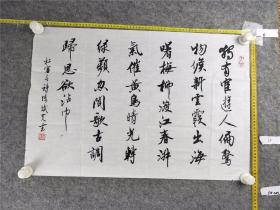 獨有宦遊人偏驚
物候新雲霞出海
曙梅柳渡江春淑
氣催黃鳥晴光轉
綠蘋忽聞歌古調
歸思欲沾巾
杜審言詩 書